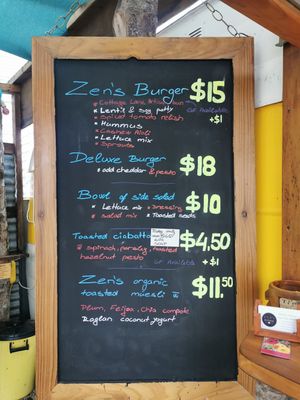 Zen's Burger $15
* Cottage Lane Artisan bun GF Available
* Lentil & nugg patty +$1
* Sundried tomato relish
* Hummus
* Cashew Aioli
* Lettuce mix
* Sprouts
Deluxe Burger $18
* add cheddar & pesto
Bowl of side salad $10
* Lettuce mix * dressing
* salad mix * Toasted seeds
Toasted ciabatta $4.50
w spinach, parsley, roasted
hazelnut pesto GF Available +$1
Zen's organic $11.50
toasted muesli w
Plum, Feijoa, Chia compote
Raglan coconut yogurt